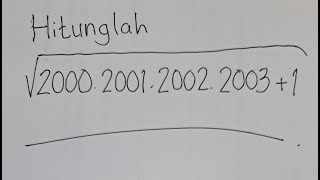 Hitunglah
√2000.2001.2002.2003+1